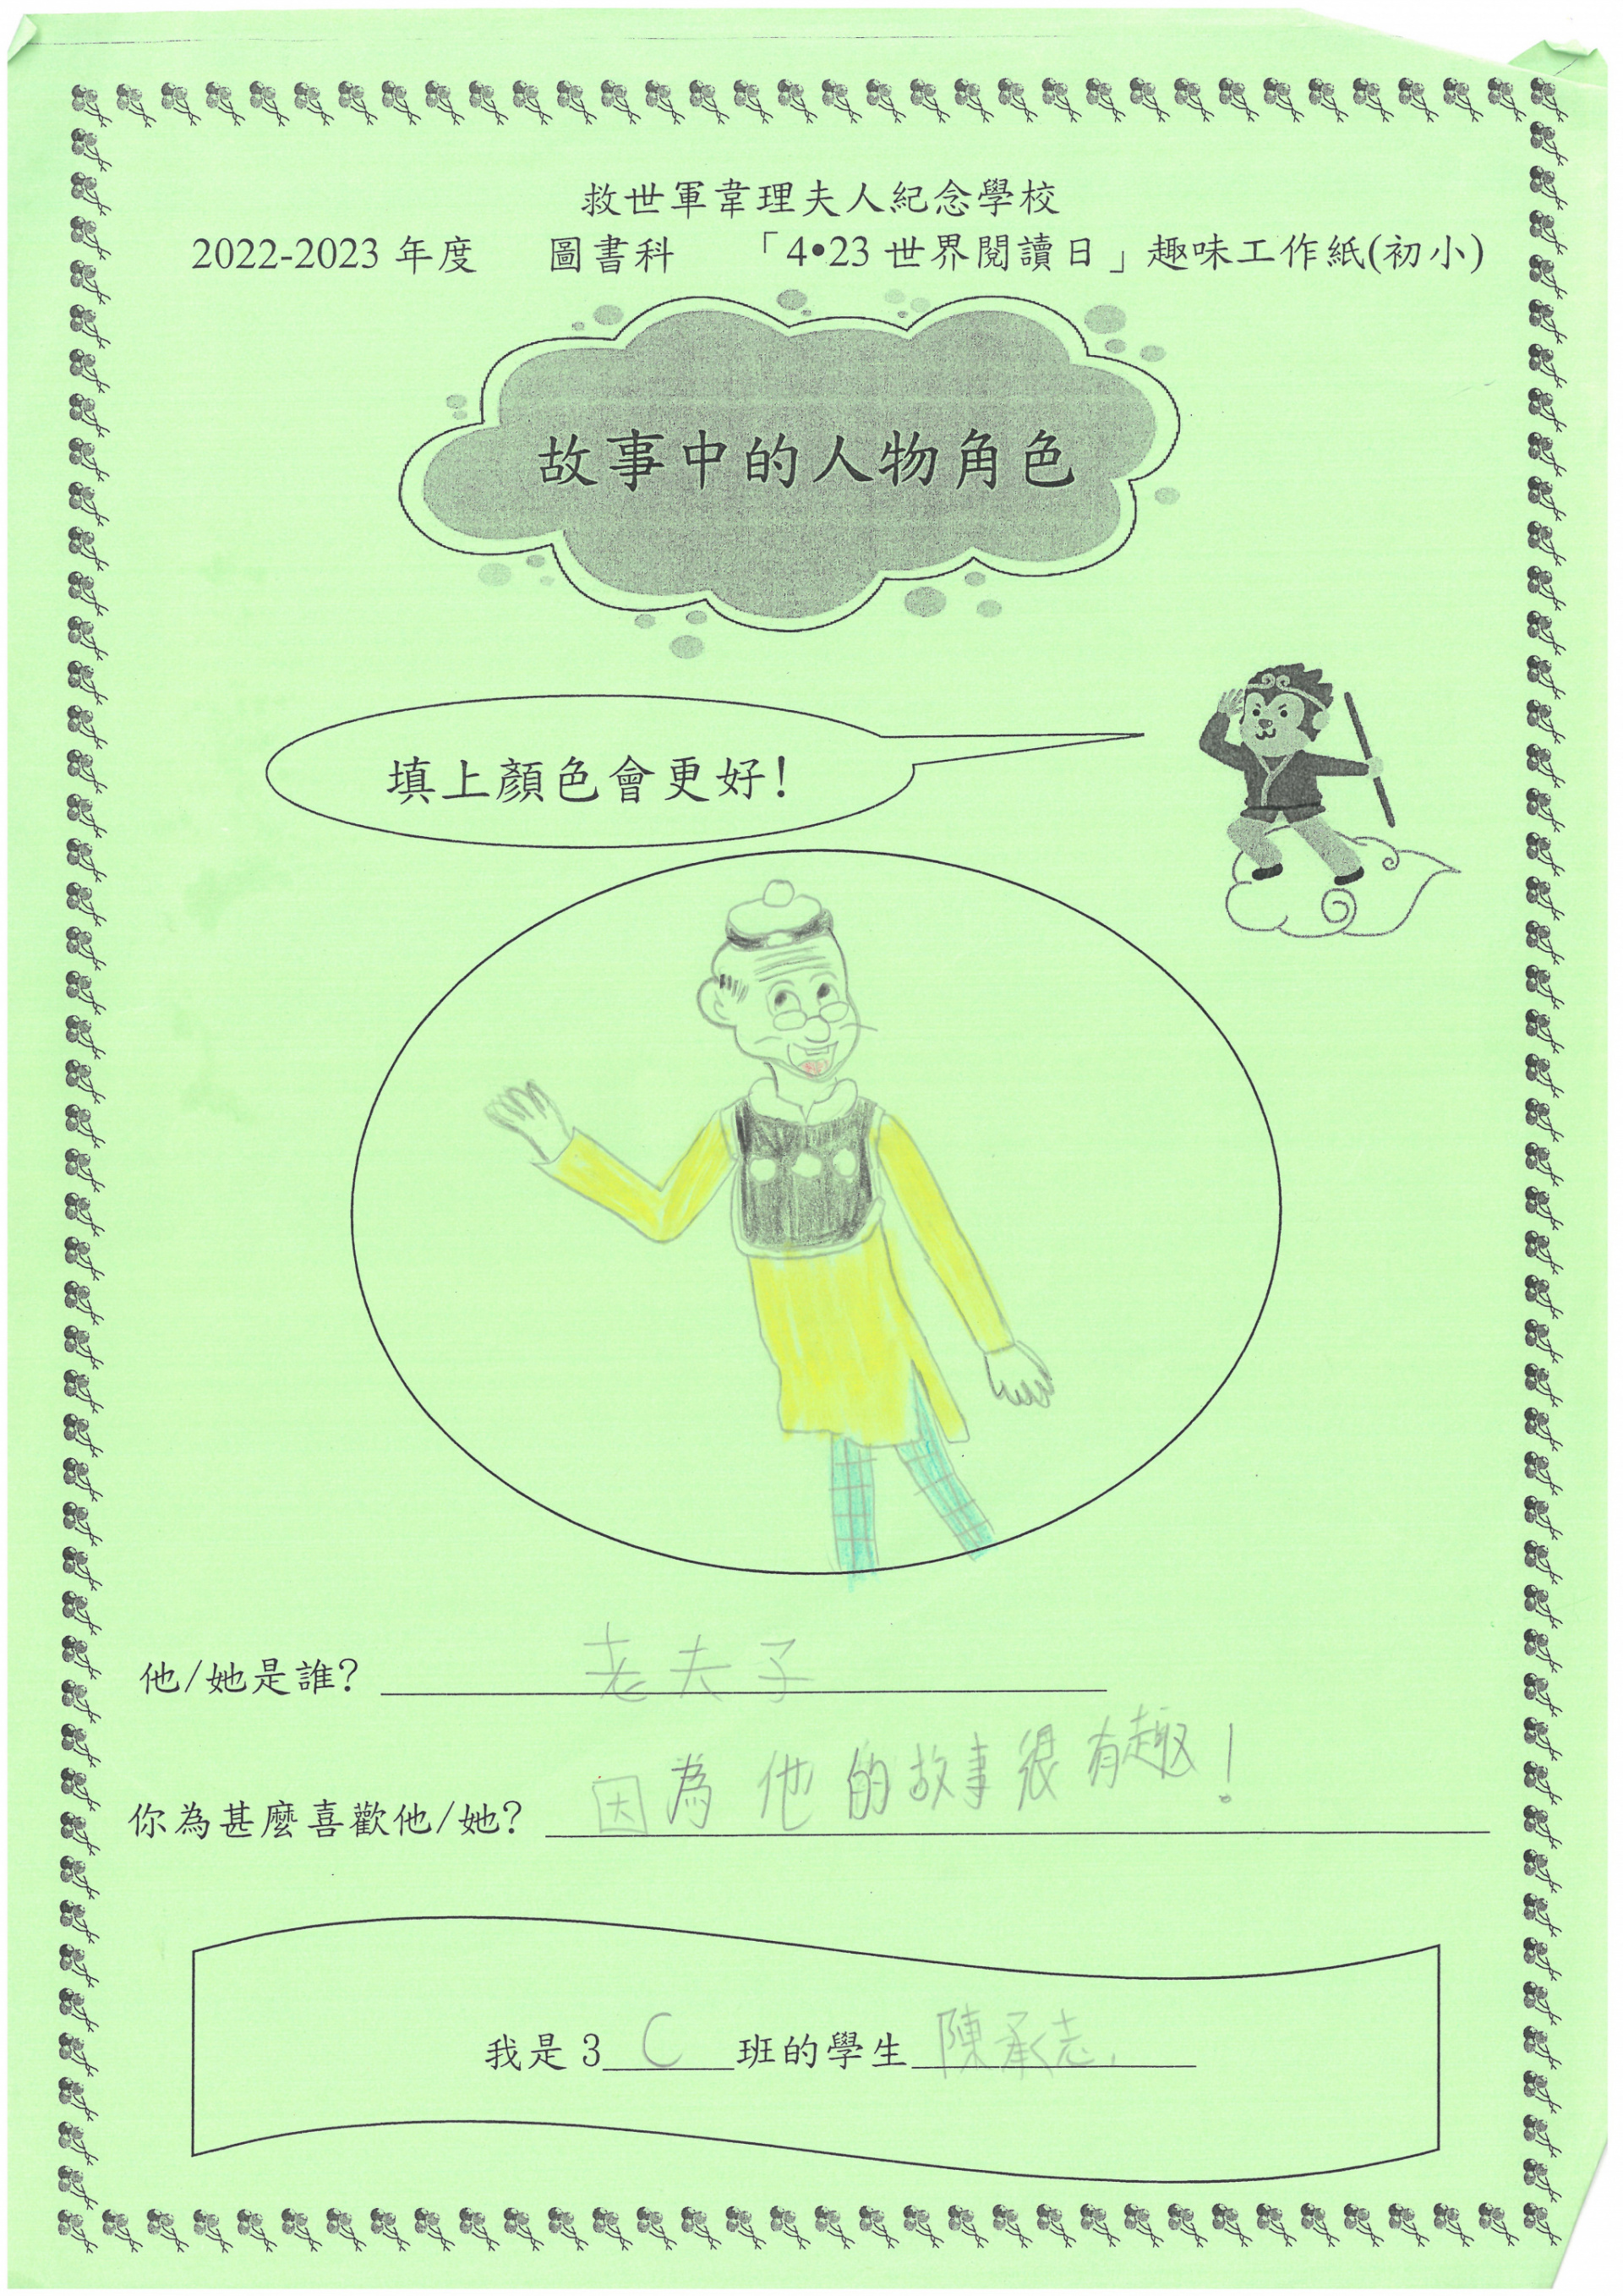 救世軍韋理夫人紀念學校
2022-2023 年度 圖書科 「4•23 世界閱讀日」趣味工作紙(初小)
故事中的人物角色
填上顏色會更好!
他/她是誰? 老夫子
你為甚麼喜歡他/她? 因為他的故事很有趣!
我是 3 C 班的學生 陳承志